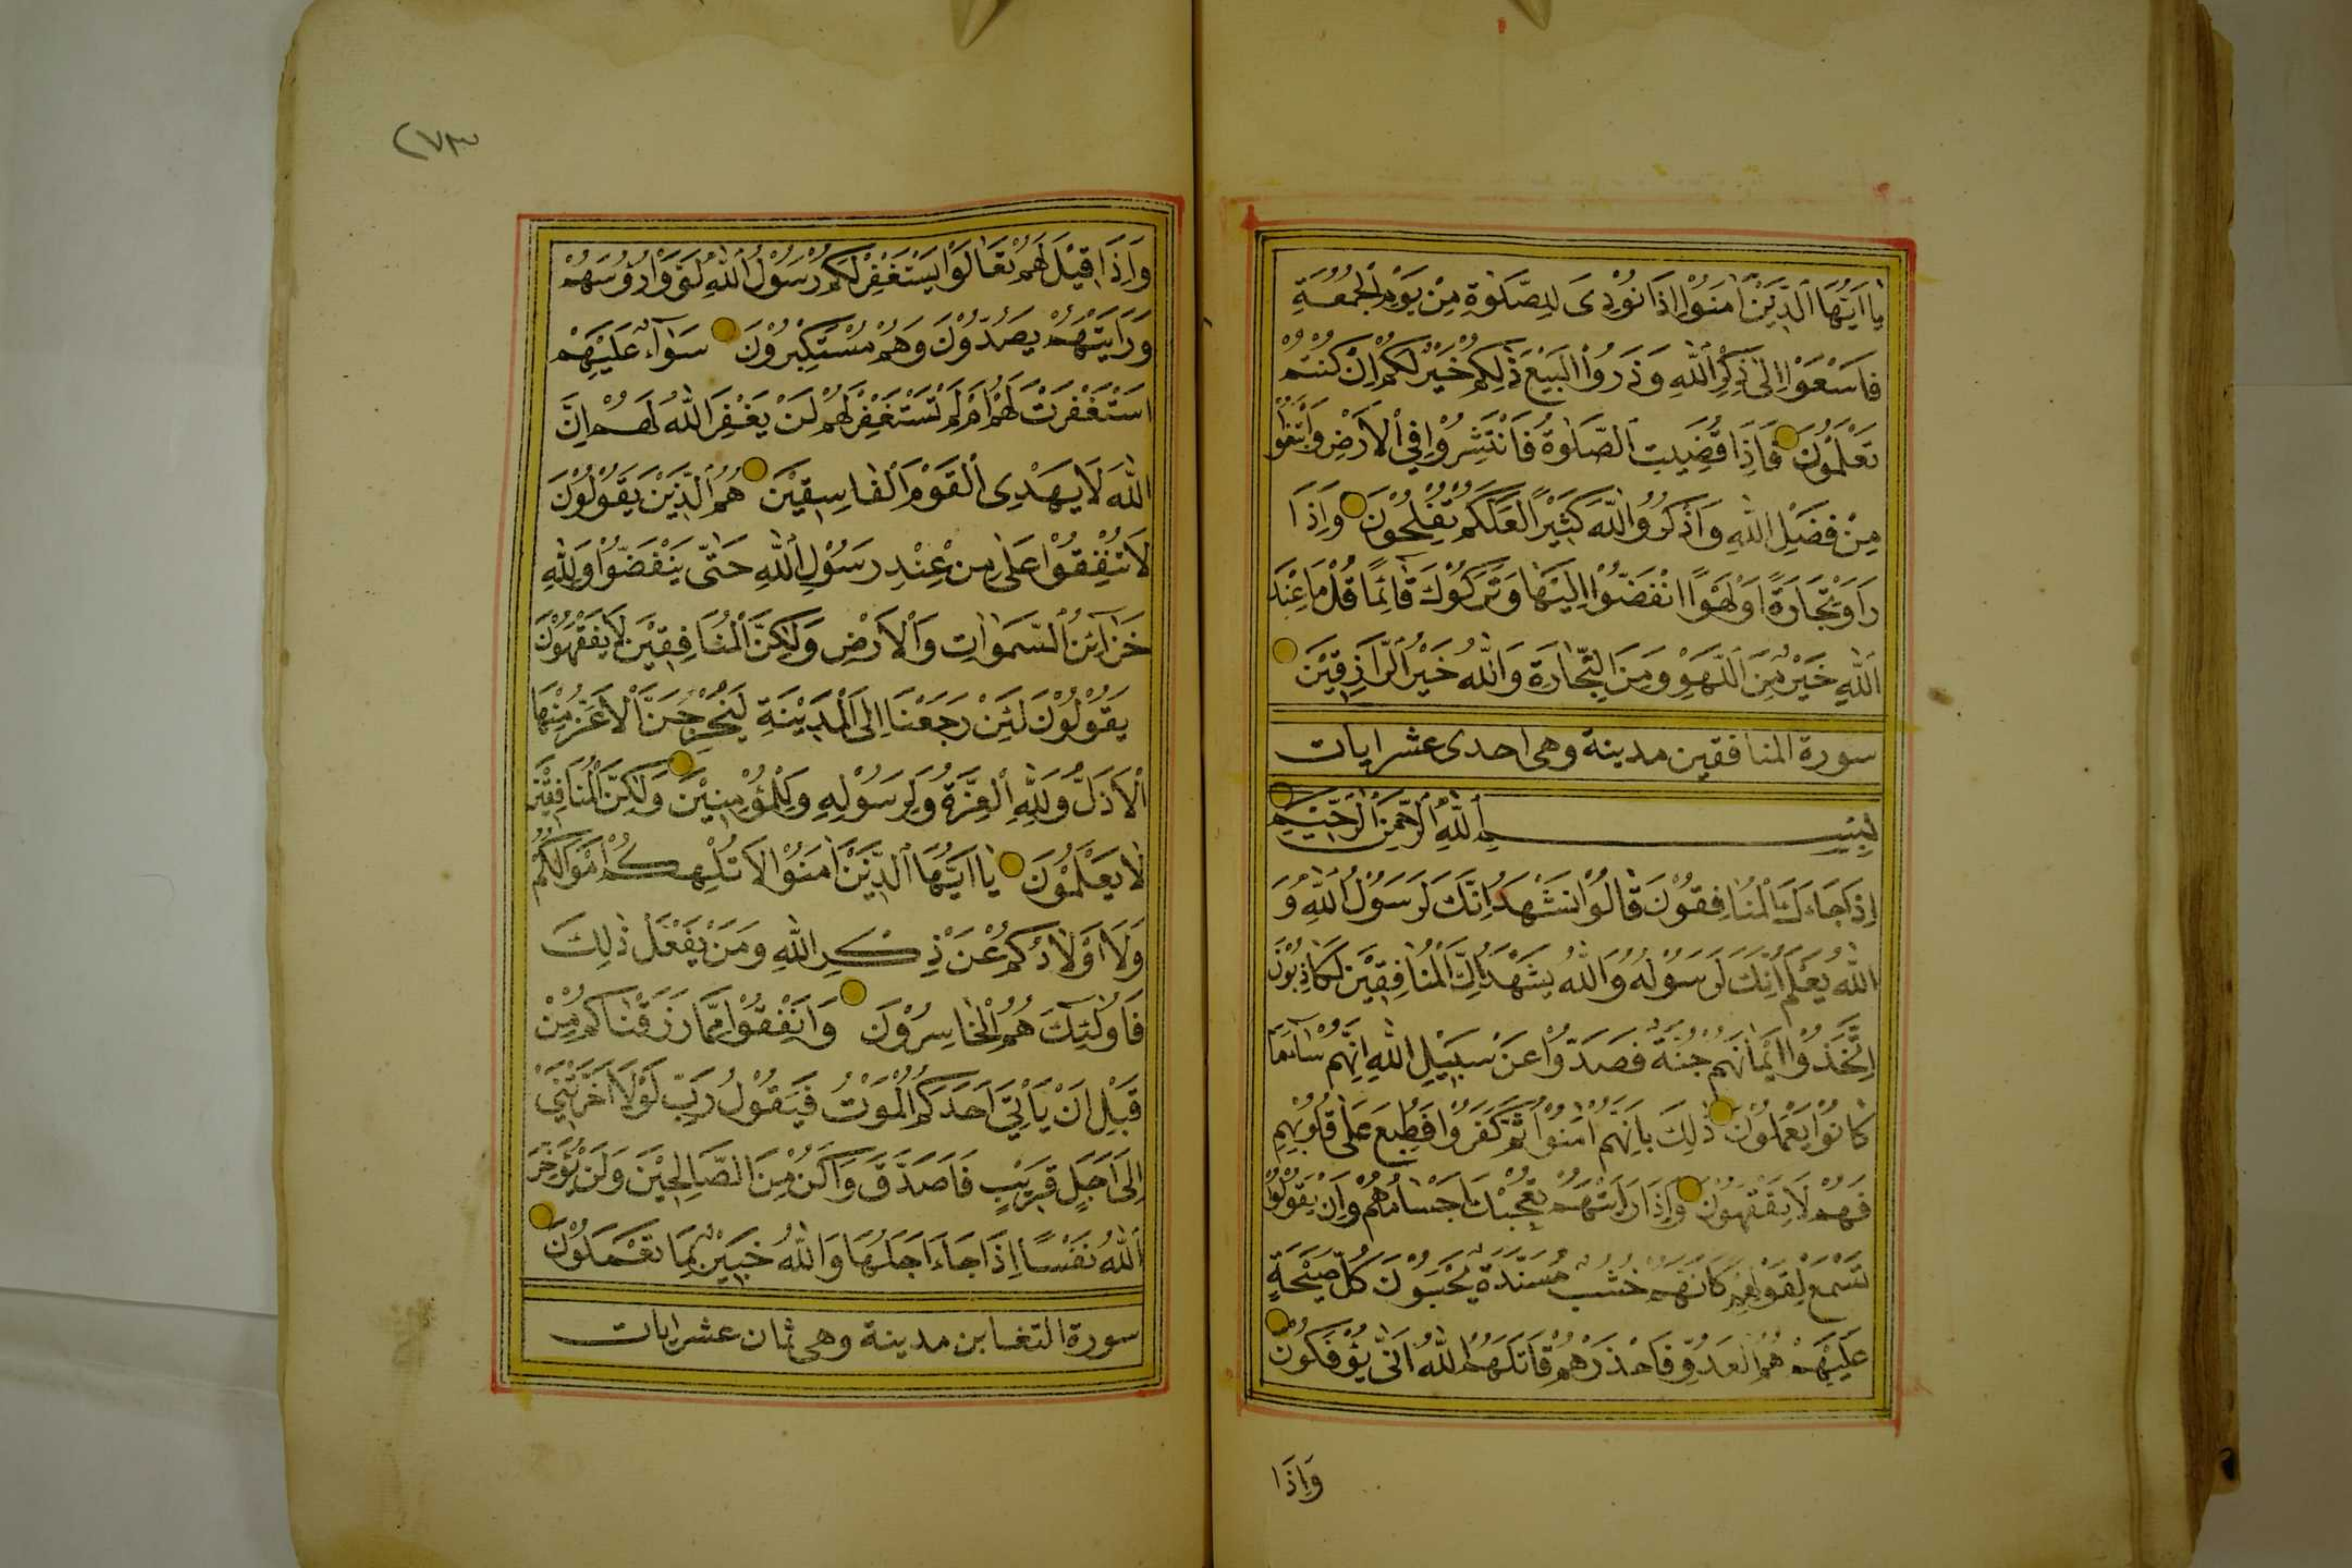 يَا اَيُّهَا الَّذِيْنَ اٰمَنُوْا اِذَا نُوْدِىَ لِلصَّلٰوةِ مِنْ يَوْمِ الْجُمُعَةِ
فَاسْعَوْا اِلٰى ذِكْرِ اللّٰهِ وَذَرُوا الْبَيْعَ ذٰلِكُمْ خَيْرٌ لَكُمْ اِنْ كُنْتُمْ
تَعْلَمُوْنَ فَاِذَا قُضِيَتِ الصَّلٰوةُ فَانْتَشِرُوْا فِي الْاَرْضِ وَابْتَغُوْا
مِنْ فَضْلِ اللّٰهِ وَاذْكُرُوا اللّٰهَ كَثِيْرًا لَعَلَّكُمْ تُفْلِحُوْنَ وَاِذَا
رَاَوْ تِجَارَةً اَوْ لَهْوًا انْفَضُّوْا اِلَيْهَا وَتَرَكُوْكَ قَائِمًا قُلْ مَا عِنْدَ
اللّٰهِ خَيْرٌ مِنَ اللَّهْوِ وَمِنَ التِّجَارَةِ وَاللّٰهُ خَيْرُ الرَّازِقِيْنَ
سورة المنافقين مدينة وهى احدى عشر ايات
بِسْمِ اللّٰهِ الرَّحْمٰنِ الرَّحِيْمِ
اِذَا جَاءَكَ الْمُنَافِقُوْنَ قَالُوْا نَشْهَدُ اِنَّكَ لَرَسُوْلُ اللّٰهِ وَ
اللّٰهُ يَعْلَمُ اِنَّكَ لَرَسُوْلُهُ وَاللّٰهُ يَشْهَدُ اِنَّ الْمُنَافِقِيْنَ لَكَاذِبُوْنَ
اِتَّخَذُوْا اَيْمَانَهُمْ جُنَّةً فَصَدُّوْا عَنْ سَبِيْلِ اللّٰهِ اِنَّهُمْ سَاءَ مَا
كَانُوْا يَعْمَلُوْنَ ذٰلِكَ بِاَنَّهُمْ اٰمَنُوْا ثُمَّ كَفَرُوْا فَطُبِعَ عَلٰى قُلُوْبِهِمْ
فَهُمْ لَا يَفْقَهُوْنَ وَاِذَا رَاَيْتَهُمْ تُعْجِبُكَ اَجْسَامُهُمْ وَاِنْ يَقُوْلُوْا
تَسْمَعْ لِقَوْلِهِمْ كَاَنَّهُمْ خُشُبٌ مُسَنَّدَةٌ يَحْسَبُوْنَ كُلَّ صَيْحَةٍ
عَلَيْهِمْ هُمُ الْعَدُوُّ فَاحْذَرْهُمْ قَاتَلَهُمُ اللّٰهُ اَنّٰى يُؤْفَكُوْنَ
وَاِذَا
٢٧٣
وَاِذَا قِيْلَ لَهُمْ تَعَالَوْا يَسْتَغْفِرْ لَكُمْ رَسُوْلُ اللّٰهِ لَوَّوْا رُؤُسَهُمْ
وَرَاَيْتَهُمْ يَصُدُّوْنَ وَهُمْ مُسْتَكْبِرُوْنَ سَوَآءٌ عَلَيْهِمْ
اسْتَغْفَرْتَ لَهُمْ اَمْ لَمْ تَسْتَغْفِرْ لَهُمْ لَنْ يَغْفِرَ اللّٰهُ لَهُمْ اِنَّ
اللّٰهَ لَا يَهْدِى الْقَوْمَ الْفَاسِقِيْنَ هُمُ الَّذِيْنَ يَقُوْلُوْنَ
لَا تُنْفِقُوْا عَلٰى مَنْ عِنْدَ رَسُوْلِ اللّٰهِ حَتّٰى يَنْفَضُّوْا وَلِلّٰهِ
خَزَآئِنُ السَّمٰوَاتِ وَالْاَرْضِ وَلٰكِنَّ الْمُنَافِقِيْنَ لَا يَفْقَهُوْنَ
يَقُوْلُوْنَ لَئِنْ رَجَعْنَا اِلَى الْمَدِيْنَةِ لَيُخْرِجَنَّ الْاَعَزُّ مِنْهَا
الْاَذَلَّ وَلِلّٰهِ الْعِزَّةُ وَلِرَسُوْلِهِ وَلِلْمُؤْمِنِيْنَ وَلٰكِنَّ الْمُنَافِقِيْنَ
لَا يَعْلَمُوْنَ يَا اَيُّهَا الَّذِيْنَ اٰمَنُوْا لَا تُلْهِكُمْ اَمْوَالُكُمْ
وَلَا اَوْلَادُكُمْ عَنْ ذِكْرِ اللّٰهِ وَمَنْ يَفْعَلْ ذٰلِكَ
فَاُولٰئِكَ هُمُ الْخَاسِرُوْنَ وَاَنْفِقُوْا مِمَّا رَزَقْنَاكُمْ مِنْ
قَبْلِ اَنْ يَاْتِيَ اَحَدَكُمُ الْمَوْتُ فَيَقُوْلُ رَبِّ لَوْلَا اَخَّرْتَنِيْ
اِلٰى اَجَلٍ قَرِيْبٍ فَاَصَّدَّقَ وَاَكُنْ مِنَ الصَّالِحِيْنَ وَلَنْ يُؤَخِّرَ
اللّٰهُ نَفْسًا اِذَا جَاءَ اَجَلُهَا وَاللّٰهُ خَبِيْرٌ بِمَا تَعْمَلُوْنَ
سورة التغابن مدينة وهى ثمان عشر ايات